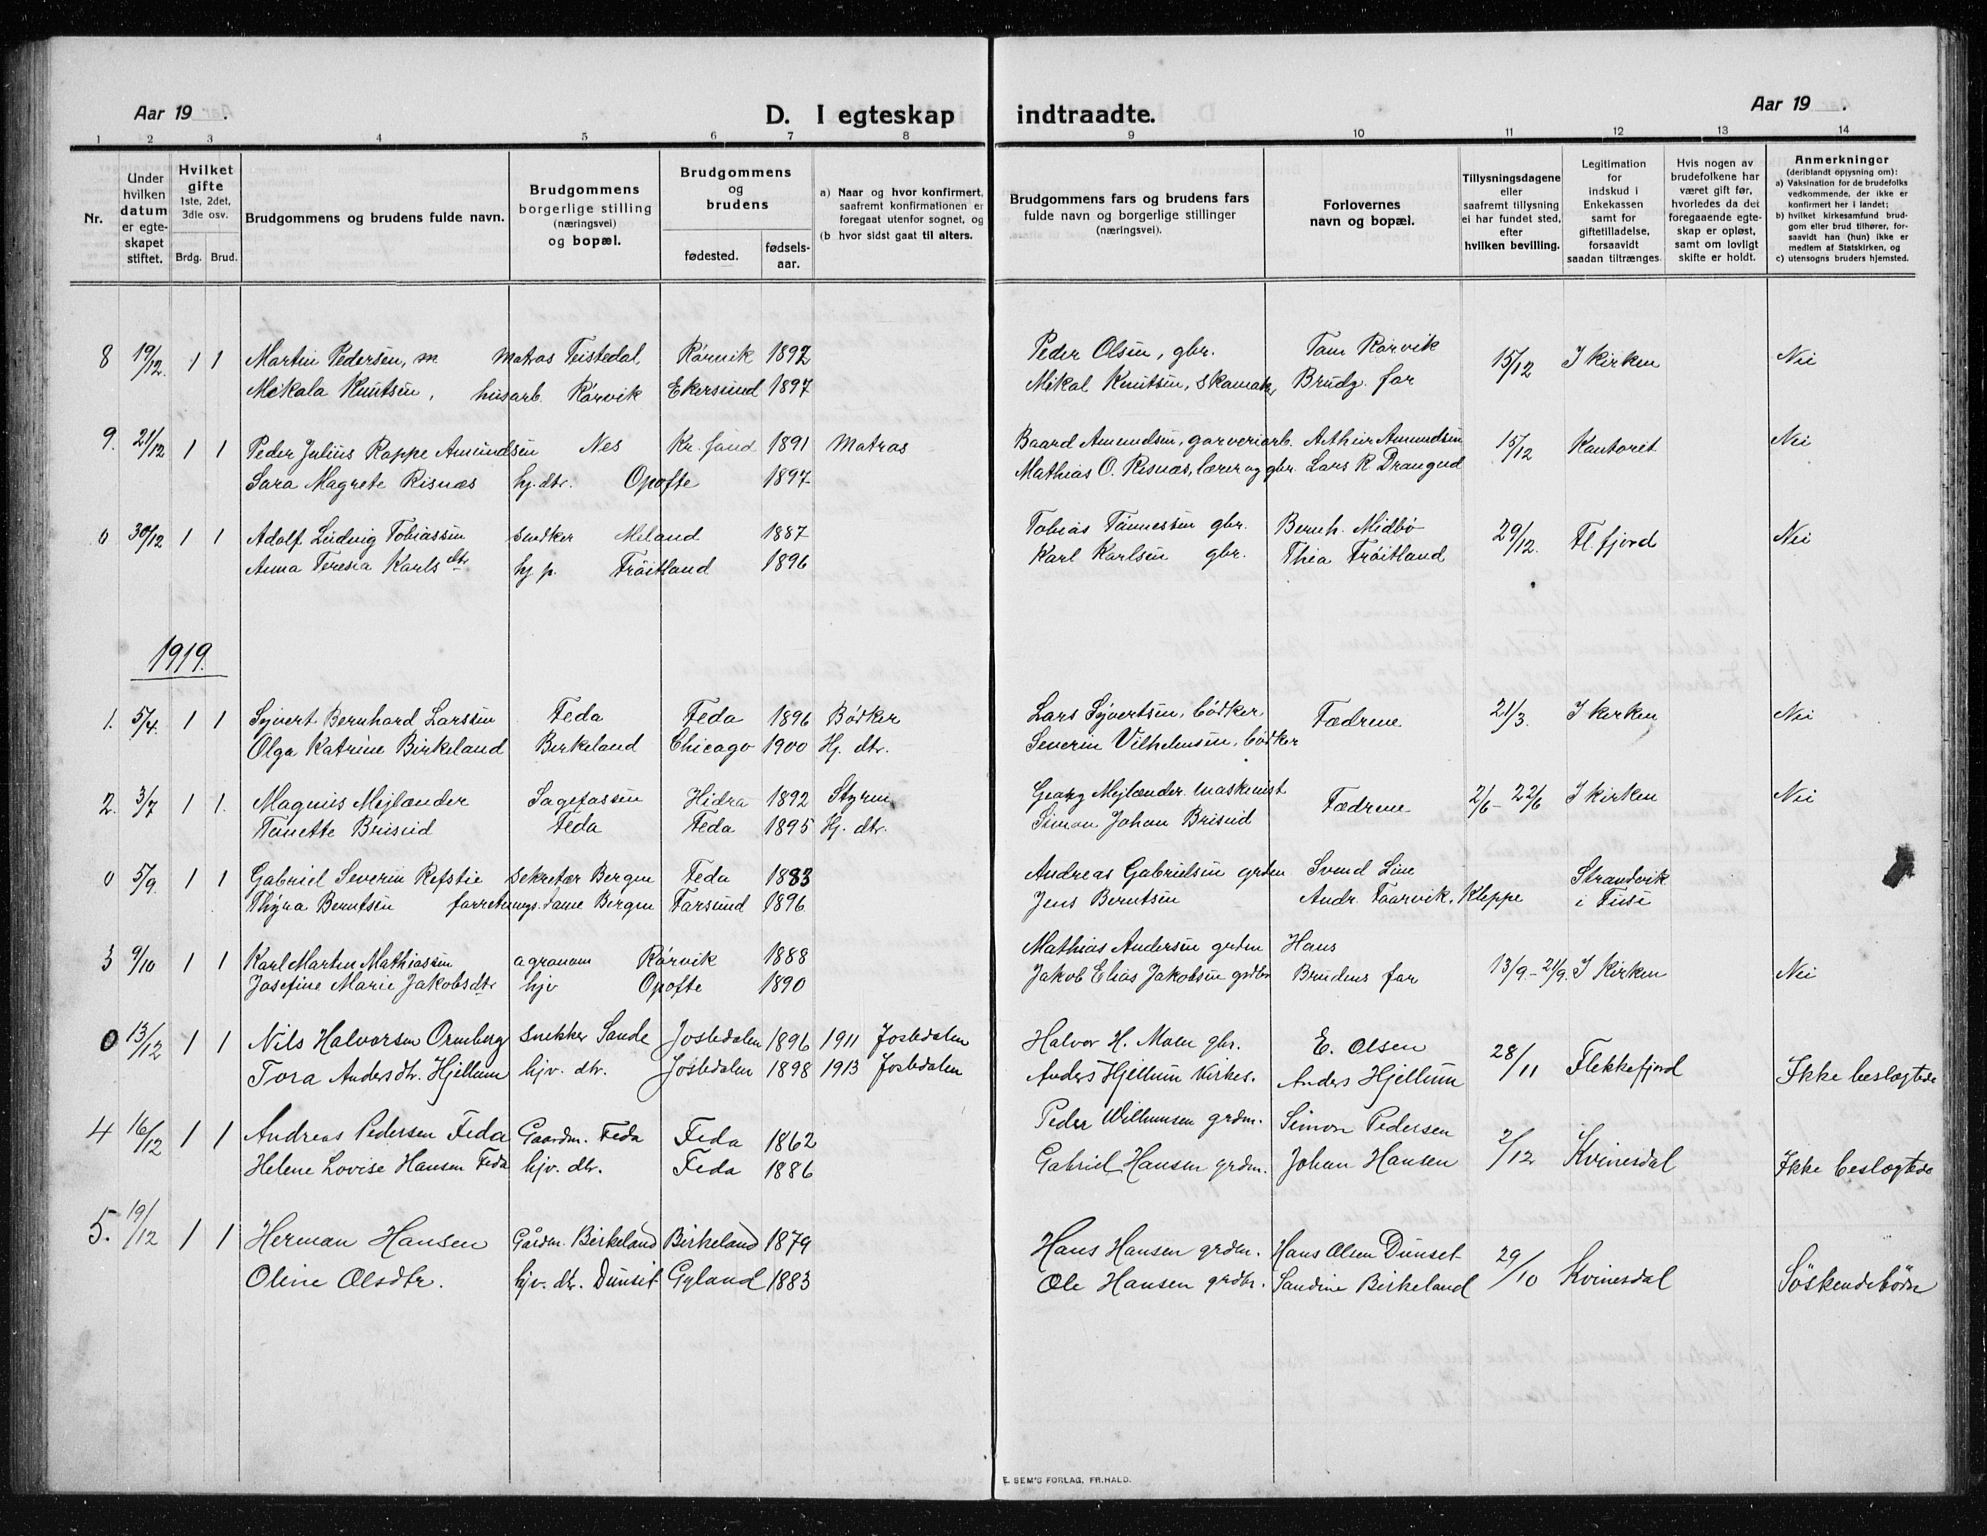 Aar 19 .
D. I egteskap indtraadte.
Aar 19 .
1 2 3 4 5 6 7 8 9 10 11 12 13 14
Nr.
Under hvilken datum er egteskapet stiftet.
Hvilket gifte 1ste, 2det, 3dle osv.
Brdg. Brud.
Brudgommens og brudens fulde navn.
Brudgommens borgerlige stilling (næringsvei) og bopæl.
Brudgommens og brudens
fødested. fødsels-aar.
a) Naar og hvor konfirmert, saafremt konfirmationen er foregaat utenfor sognet, og
(b hvor sidst gaat til alters.
Brudgommens fars og brudens fars fulde navn og borgerlige stillinger (næringsvei).
Forlovernes navn og bopæl.
Tillysningsdagene eller saafremt tillysning ei har fundet sted, efter hvilken bevilling.
Legitimation for indskud i Enkekassen samt for giftetilladelse, forsaavidt saadan tiltrænges.
Hvis nogen av brudefolkene har været gift før, hvorledes da det foregaaende egteskap er opløst, samt om lovligt skifte er holdt.
Anmerkninger (deriblandt opysning om):
a) Vaksination for de brudefolks vedkommende, der ikke er konfirmert her i landet;
b) hvilket kirkesamfund brudgom eller brud tilhører, forsaavidt han (hun) ikke er medlem af Statskirken, og
c) utensogns bruders hjemsted.
8 19/12. 1 1 Martin Pedersen, m Matros Teistedal Rørvik 1897 Peder Olsen, gbr. Tom Rørvik 15/12 I kirken Nei
Mikala Knutsen, husarb. Rørvik Ekersund 1897 Mikal Knutsen, skomaker Brudg. far
9. 21/12 1 1 Peder Julius Roppe Amundsen Nes Kr.sand 1891 Matros Baard Amundsen, garveriarb. Arthur Amundsen 15/12 Kontoret Nei
Sara Magrete Risnæs hj. dtr. Opofte 1897 Mathias O. Risnæs, lærer og gbr. Lars R Drangeid
0 30/12 1 1 Adolf Ludvig Tobiassen snedker Meland 1887 Tobias Tønnessen gbr. Bernh. Midbø 29/12. Fl.fjord Nei
Anna Teresia Karlsdtr hj. p. Frøitland 1896 Karl Karlsen gbr. Thea Frøitland
1919.
1. 5/4. 1 1 Syvert Bernhard Larssen Feda Feda 1896 Bødker Lars Syvertsen, bødker Fædrene 21/3. I kirken Nei
Olga Katrine Birkeland Birkeland Chicago 1900 Hj. dtr. Severin Vilhelmsen, bødker
2. 3/7 1 1. Magnus Mejlænder Sagefossen Hidra 1892 Styrm Georg Mejlænder maskinist Fædrene 2/6 - 22/6 I kirken Nei
Tanette Briseid Feda Feda 1895 Hj. dtr. Simon Johan Briseid
0 5/9. 1 1 Gabriel Severin Refstie Sekretær Bergen Feda 1883 Andreas Gabrielsen grdm Svend Line Strandvik
Thyra Berntsen forretnings dame Bergen Farsund 1896 Jens Berntsen Andr. Taarvik, Kleppe i Fusе
3 9/10 1 1 Karl Martin Mathiassen agronom Rørvik 1888 Mathias Andersen grdm Hans
Josefine Marie Jakobsdtr hjv Opofte 1890 Jakob Elias Jakobsen grdbr Brudens far 13/9 - 21/9. I Kirken Nei
0 13/12 1 1 Nils Halvorsen Ormberg snekker Sande Jostedalen 1896 1911 Jostedalen Halvor H. Moen gbr. E. Olsen 28/11 Flekkefjord
Tora Andersdtr. Hjellum hjv. dtr. Jostedalen 1898 1913 Jostedalen Anders Hjellum Kirkes. Anders Hjellum Ikke beslegtede
4 16/12 1 1 Andreas Pedersen Feda Gaardm. Feda Feda 1862 Peder Willumsen grdm. Simon Pedersen 2/12 Kvinesdal
Helene Lovise Hansen Feda hjv. dtr. Feda 1886 Gabriel Hansen grdm. Johan Hansen Ikke beslegtede
5. 19/12 1 1 Herman Hansen Gårdm. Birkeland Birkeland 1879 Hans Hansen grdm. Hans Olsen Dunset 29/10 Kvinesdal
Oline Olsdtr. hjv. dtr. Dunset Gyland 1883 Ole Hansen grdbr. Sandine Birkeland Söskendebörn
E. SEM'S FORLAG, FR.HALD.